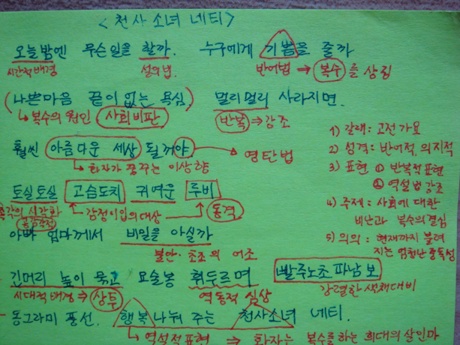 <천사소녀 네티>
오늘밤엔 무슨일을 할까. 누구에게 기쁨을 줄까
시간적배경 설의법 반어법 → 복수를 상징
(나쁜마음 끝이 없는 욕심) 멀리멀리 사라지면.
↳ 복수의 원인 사회비판 반복 ⇒ 강조
훨씬 아름다운 세상 될꺼야
↳ 화자가 꿈꾸는 이상향 영탄법
도실도실 고슴도치 귀여운 루비
감정이입의 대상 동격
아빠 엄마께서 비밀을 아실까
불안·초조의 어조
긴머리 높이 묶고 요술봉 휘두르며 빨주노초파남보
시대적배경 ⇒ 상투 역동적 심상 강렬한 색채대비
동그라미 풍선. 행복 나눠 주는 천사소녀 네티.
↳ 역설적표현 ⇒ 화자는 복수를 하는 희대의 살인마
1) 갈래: 고전가요
2) 성격: 반어적, 의지적
3) 표현 ① 반복적표현
② 역설법 강조
4) 주제: 사회에 대한
비난과 복수의 결심
5) 의의: 현재까지 불려
지는 엄청난 중독성